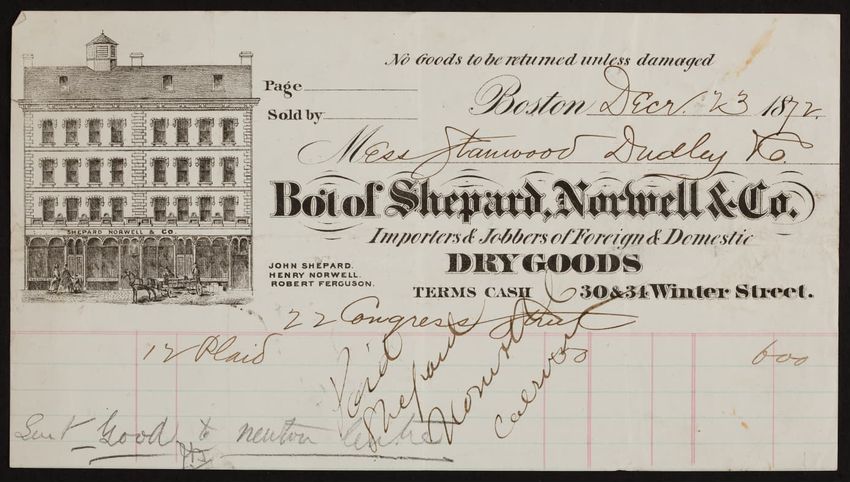 No Goods to be returned unless damaged
Page
Sold by
Boston Decr. 23 1872.
Mess Stanwood Dudley & Co.
Bot of Shepard, Norwell & Co.
Importers & Jobbers of Foreign & Domestic
DRY GOODS
TERMS CASH 30 & 34 Winter Street.
SHEPARD NORWELL & CO
JOHN SHEPARD.
HENRY NORWELL.
ROBERT FERGUSON.
22 Congress Street
12 Plaid 50 600
Paid
Shepard
Norwell
Sent Good to Newton Centre